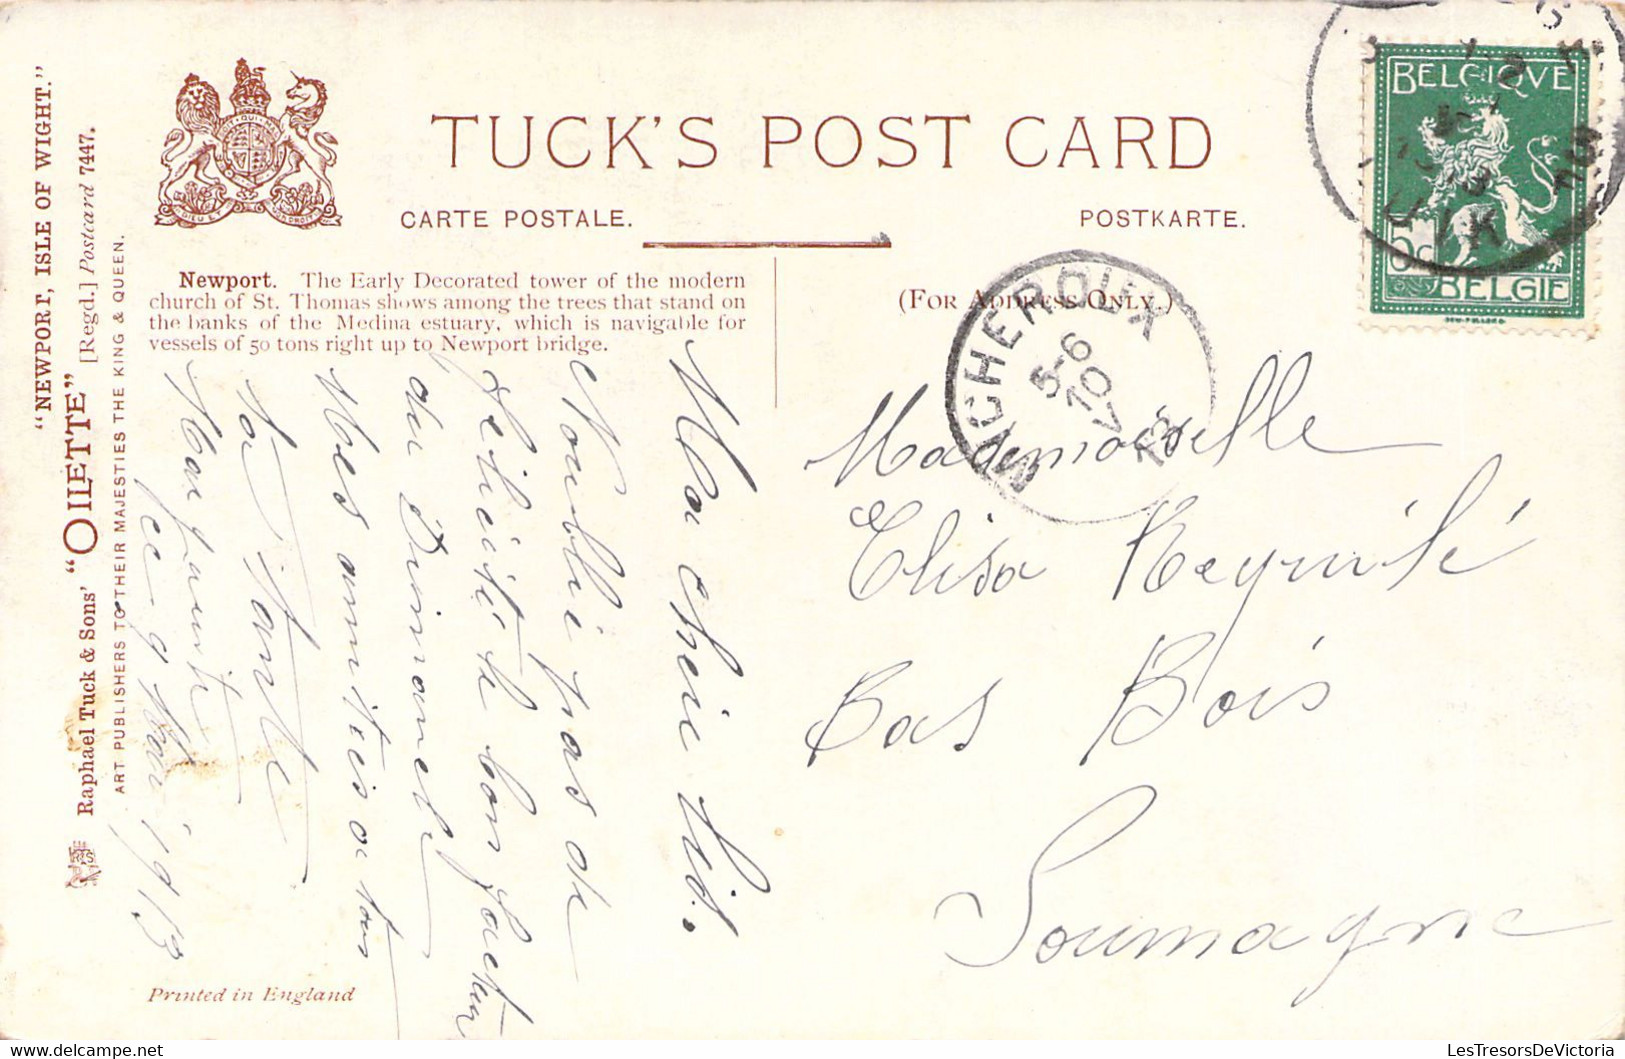 "NEWPORT, ISLE OF WIGHT."
Raphael Tuck & Sons' "OILETTE" [Regd.] Postcard 7447.
ART PUBLISHERS TO THEIR MAJESTIES THE KING & QUEEN.
TUCK'S POST CARD
CARTE POSTALE.
POSTKARTE.
Newport. The Early Decorated tower of the modern
church of St. Thomas shows among the trees that stand on
the banks of the Medina estuary, which is navigable for
vessels of 50 tons right up to Newport bridge.
(FOR ADDRESS ONLY.)
BELGIQUE
5c
BELGIE
MICHEROUX
5-6
10
V
Ma chère
N'oublie pas de
le bon facteur
du Dimanche
Mes amitiés a tous
ta Tante
Marguerite
ce 9 Mai 1913
Mademoiselle
Elisa
Bas Bois
Soumagne
Printed in England
LesTresorsDeVictoria